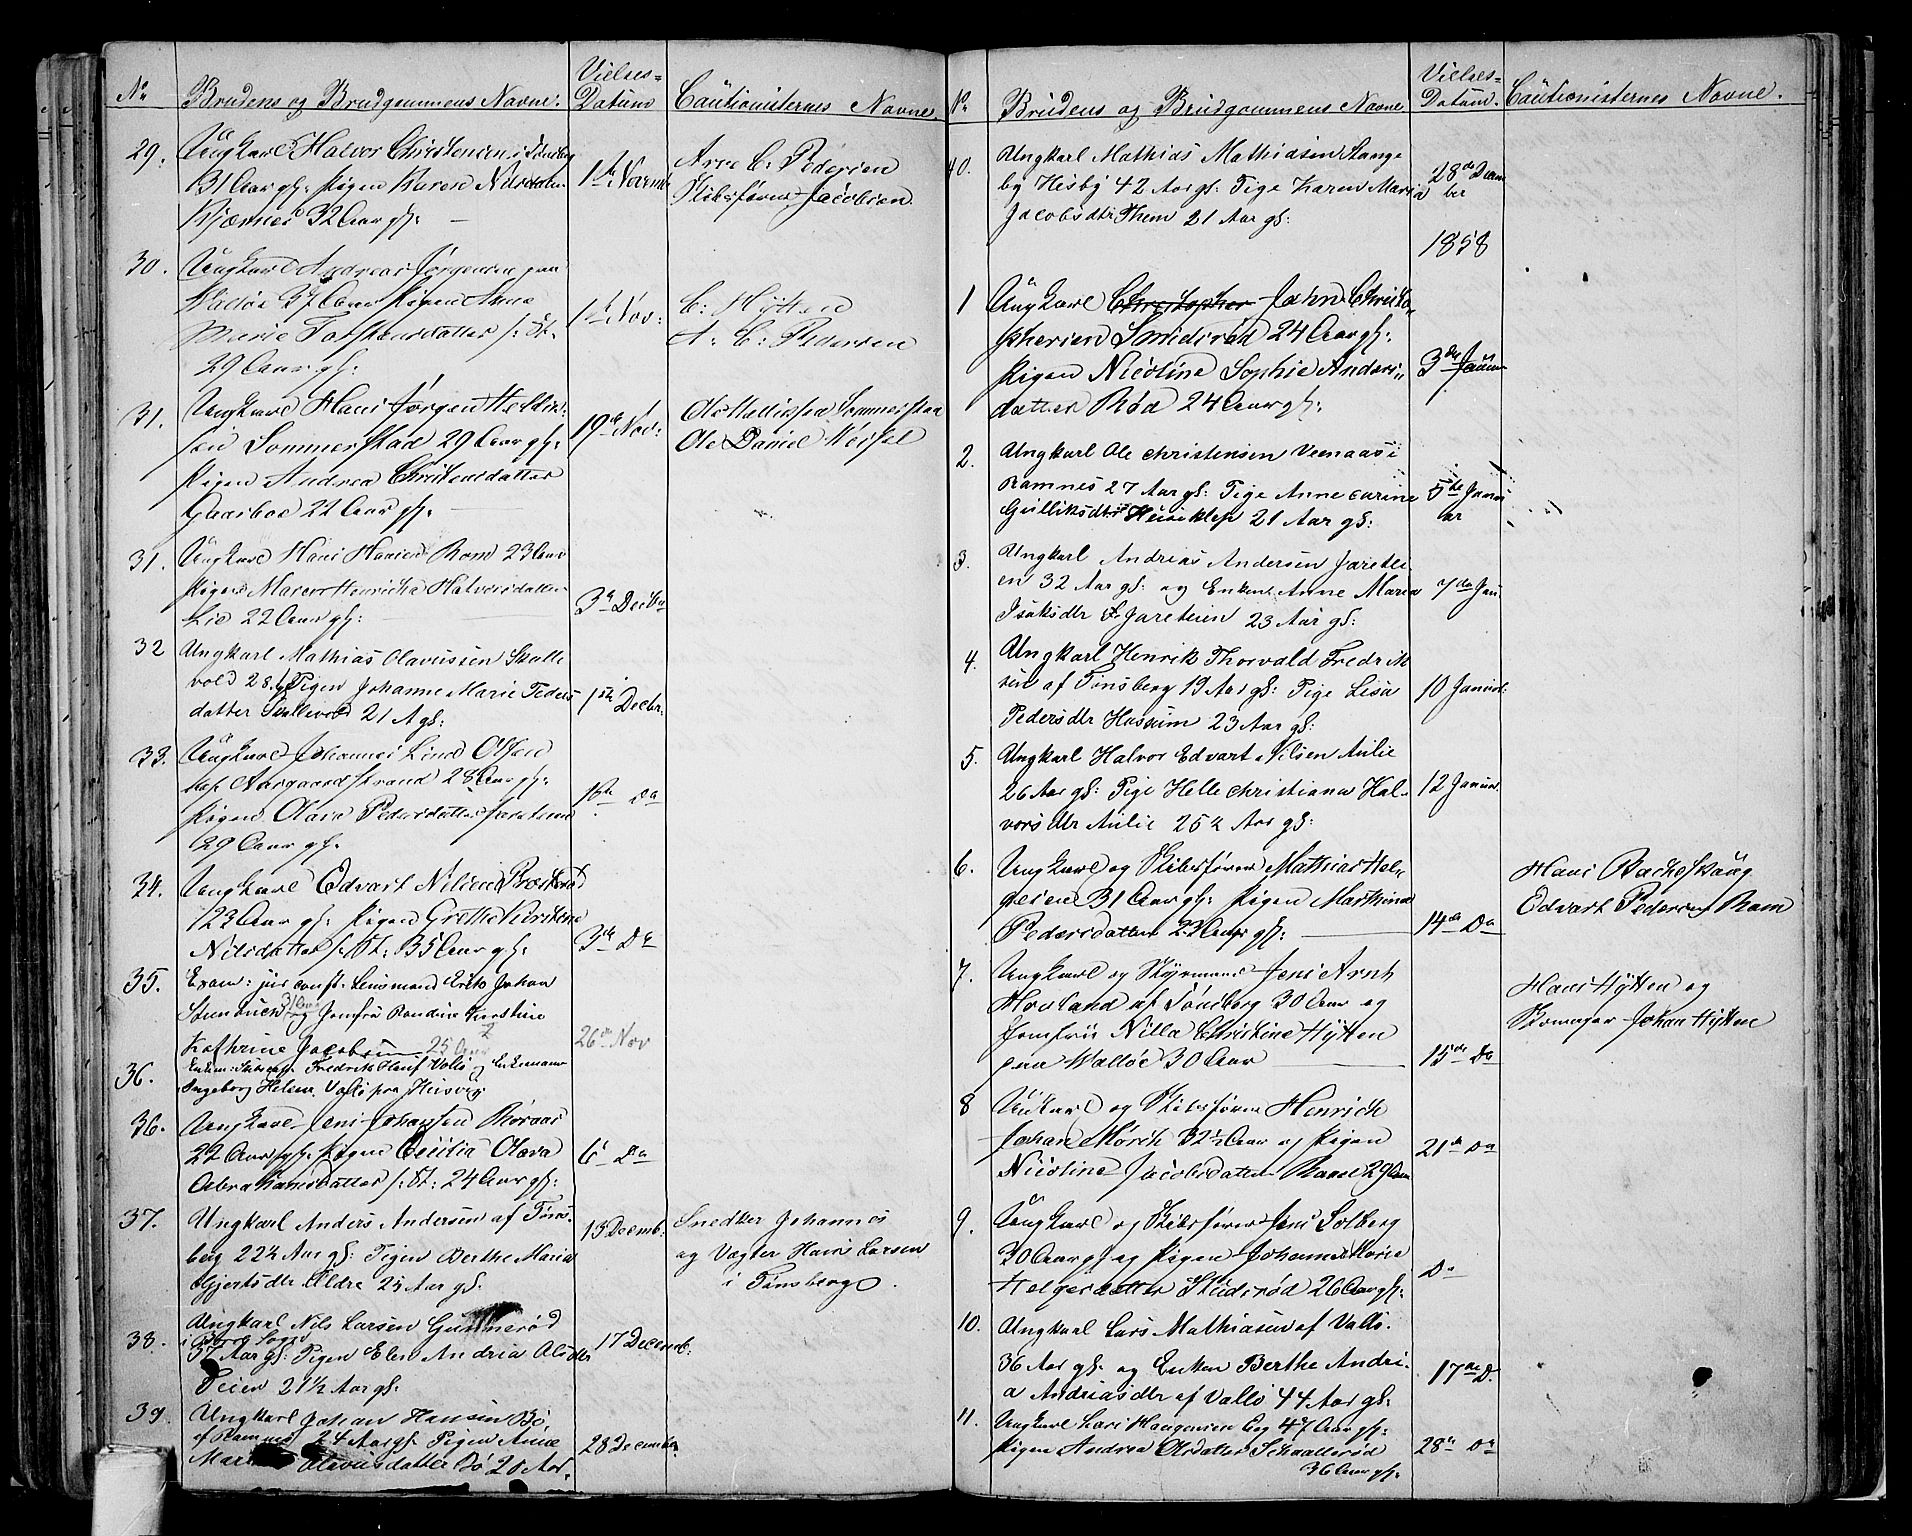 No
Brudens og Brudgommens Navne.
Vielses=
Datum
Cautionisternes Navne
29.
Ungkarl Halvor Christensen i
31 Aar gl: Pigen Karen Nilsdatter
Bjærnes 32 Aar gl:
1ste Novemb
Arve C: Pedersen
Skibsfører Jacobsen
30.
Ungkarl Andreas Jørgensen paa
Walløe 37 Aar Pigen Anne
Marie Torstensdatter f: St.
29 Aar gl:
1ste Nov:
C: Hytten
A: C: Pedersen
31.
Ungkarl Hans Jørgen
sen Sommerstad 29 Aar gl:
Pigen Andrea Christensdatter
22 Aar gl:
19de Nov:
Ole Sommerstad
Ole Daniel
31.
Ungkarl Hans Hansen Rom 23 Aar
Pigen Maren Henricka Halvorsdatter
Lie 22 Aar gl:
3de Decbr
32
Ungkarl Mathias Olavussen Skalle
vold 28. Pigen Johanne Marie Peders
datter Skallevold 21 A gl:
1ste Decbr:
33.
Ungkarl Johannes Lind Olsen
af Aasgaardstrand 28 Aar gl:
Pigen Olava Pedersdatter
29 Aar gl:
Do
34.
Ungkarl Edvart Nilsen
23 Aar gl: Pigen Grethe Kirstine
Nilsdatter f: St: 35 Aar gl:
3de Do
35.
Exam: jur const. Lensmand Erik Johan
Steenbuck 31 Aar og Jomfru Randine Kirstine
Kathrine Jacobsen 25 Aar
26de Nov
36.
Fredrik Hauf Vallø og
Ingeborg Helene Vallø fra Husvig
36.
Ungkarl Jens Johansen Røraas
22 Aar gl: Pigen Cecilia Olava
Abrahamsdatter f: St: 24 Aar gl:
6te Do
37.
Ungkarl Anders Andersen af Tøns-
berg 22½ Aar gl: Pigen Berthe Maria
Gjertsdtr Eldre 25 Aar gl:
13 Decemb:
Snedker Johannes
og Vægter Hans Larsen
i Tønsberg.
38.
Ungkarl Nils Larsen Gunnerød
i Borre Sogn
37 Aar gl: Pigen Elen Andria Olsdtr
Teien 21½ Aar gl:
17 Decemb:
39.
Ungkarl Johan Hansen Bø,
af Ramnes 24 Aar gl: Pigen Anne
Mar Olavusdatter Bø 20 Aar.
28 December
No
Brudens og Brudgommens Navne
Vielses-
Datum.
Cautionisternes Navne.
40.
Ungkarl Mathias Mathiasen Stange
by Hesby 42 Aar gl: Pige Karen Maria
Jacobsdtr Them 21 Aar gl:
28de Decem
ber
1858
1
Ungkarl Christopher John Christo-
phersen Smidsrød 24 Aar gl:
Pigen Nicoline Sophie Anders-
datter Rød 24 Aar gl:
3die Januar
2.
Ungkarl Ole Christensen Veenaas i
Ramnes 27 Aar gl: Pige Anne Carine
Gulliksdtr 21 Aar gl:
5te Janu
ar
3.
Ungkarl Andrias Andersen Jaretei
en 32 Aar gl: og Enken Anne Maria
Isaksdtr Jareteien 23 Aar gl:
7de Jan
4.
Ungkarl Henrik Thorvald Fredrik
sen af Tønsberg 19 Aar gl: Pige Lisa
Pedersdtr Hassum 23 Aar gl:
10 Januar:
5.
Ungkarl Halvor Edvart Nilsen Aulie
26 Aar gl: Pige Helle Christiana Hal-
vorsdtr Aulie 25½ Aar gl:
12 Januar
6.
Ungkarl og Skibsfører Mathias Hel-
gesen 31 Aar gl: Pigen Mathina
Pedersdatter 22 Aar gl:
14de Do
Hans Backeskaug
Edvart Pedersen Ram
7.
Ungkarl og Styrmand Jens Arnt
Hovland af Tønsberg 30 Aar og
Jomfru Nilla Christine Hytten
paa Walløe 30 Aar
15de Do
Hans Hytten og
Skomager Johan Hytten
8
Ungkarl og Skibsfører Henrich
Johan Mørch 32½ Aar og Pigen
Nicoline Jacobsdatter 29 Aar
21de Do
9.
Ungkarl og Skibsfører Jens Solberg
30 Aar gl og Pigen Johanne Marie
Helgesdatter 26 Aar gl:
Do
10.
Ungkarl Lars Mathiasen af Vallø.
36 Aar gl: og Enken Berthe Andri-
a Andriasdtr af Vallø 44 Aar gl:
17de D.
11.
Ungkarl Lars Haugensen Eeg 47 Aar gl:
Pigen Andrea Olsdatter Skallerød
36 Aar gl:
28de Do